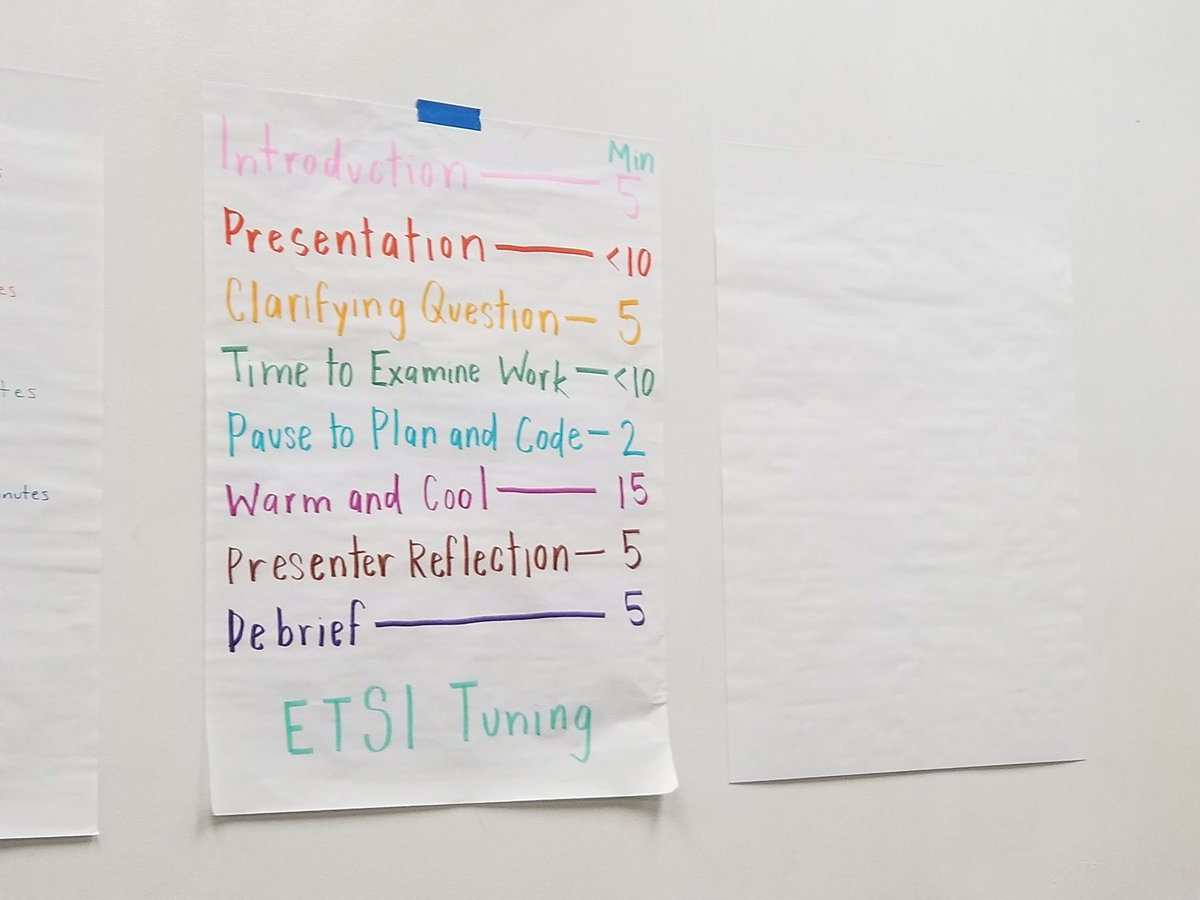 Min
Introduction — 5
Presentation — <10
Clarifying Question — 5
Time to Examine Work — <10
Pause to Plan and Code — 2
Warm and Cool — 15
Presenter Reflection — 5
Debrief — 5
ETSI Tuning
nutes